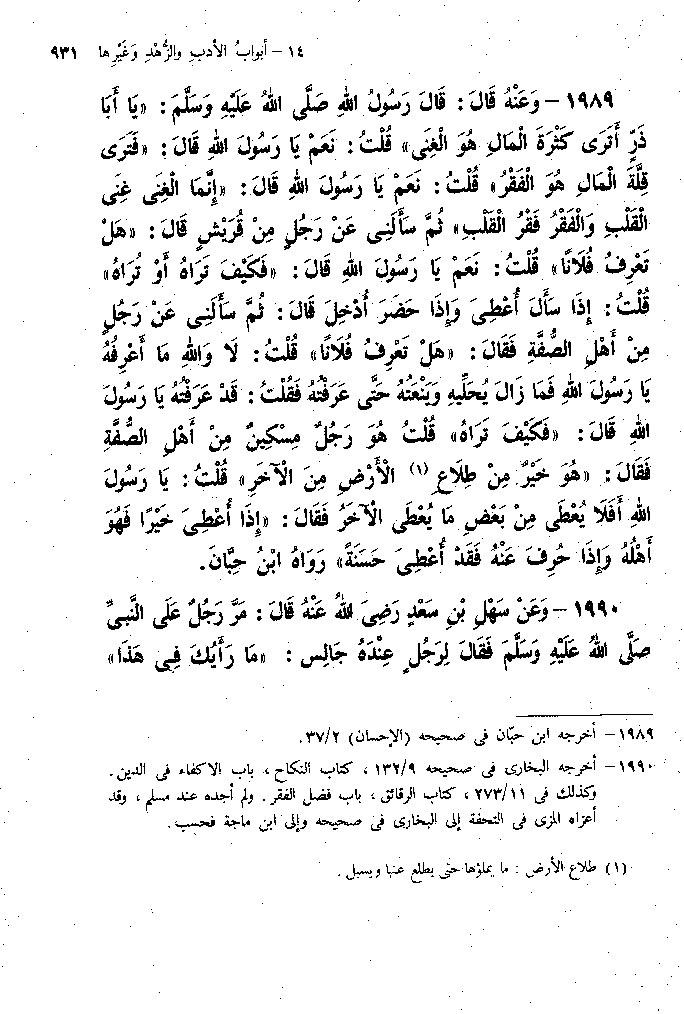 ١٤ - أبوابُ الأدبِ والزُّهْدِ وَغَيْرِها ٩٣١
١٩٨٩ - وَعَنْهُ قَالَ : قَالَ رَسُولُ اللهِ صَلَّى اللهُ عَلَيْهِ وَسَلَّمَ : «يَا أَبَا
ذَرٍّ أَتَرَى كَثْرَةَ الْمَالِ هُوَ الْغِنَى» قُلْتُ : نَعَمْ يَا رَسُولَ اللهِ قَالَ : «فَتَرَى
قِلَّةَ الْمَالِ هُوَ الْفَقْرُ» قُلْتُ : نَعَمْ يَا رَسُولَ اللهِ قَالَ : «إِنَّمَا الْغِنَى غِنَى
الْقَلْبِ وَالْفَقْرُ فَقْرُ الْقَلْبِ» ثُمَّ سَأَلَنِى عَنْ رَجُلٍ مِنْ قُرَيْشٍ قَالَ : «هَلْ
تَعْرِفُ فُلَانًا» قُلْتُ : نَعَمْ يَا رَسُولَ اللهِ قَالَ : «فَكَيْفَ تَرَاهُ أَوْ تُرَاهُ»
قُلْتُ : إِذَا سَأَلَ أُعْطِىَ وَإِذَا حَضَرَ أُدْخِلَ قَالَ : ثُمَّ سَأَلَنِى عَنْ رَجُلٍ
مِنْ أَهْلِ الصُّفَّةِ فَقَالَ : «هَلْ تَعْرِفُ فُلَانًا» قُلْتُ : لَا وَاللهِ مَا أَعْرِفُهُ
يَا رَسُولَ اللهِ فَمَا زَالَ يُحَلِّيهِ وَيَنْعَتُهُ حَتَّى عَرَفْتُهُ فَقُلْتُ : قَدْ عَرَفْتُهُ يَا رَسُولَ
اللهِ قَالَ : «فَكَيْفَ تَرَاهُ» قُلْتُ هُوَ رَجُلٌ مِسْكِينٌ مِنْ أَهْلِ الصُّفَّةِ
فَقَالَ : «هُوَ خَيْرٌ مِنْ طِلَاعِ (١) الْأَرْضِ مِنَ الْآخَرِ» قُلْتُ : يَا رَسُولَ
اللهِ أَفَلَا يُعْطَى مِنْ بَعْضِ مَا يُعْطَى الْآخَرُ فَقَالَ : «إِذَا أُعْطِىَ خَيْرًا فَهُوَ
أَهْلُهُ وَإِذَا صُرِفَ عَنْهُ فَقَدْ أُعْطِىَ حَسَنَةً» رَوَاهُ ابْنُ حِبَّانَ.
١٩٩٠ - وَعَنْ سَهْلِ بْنِ سَعْدٍ رَضِىَ اللهُ عَنْهُ قَالَ : مَرَّ رَجُلٌ عَلَى النَّبِىِّ
صَلَّى اللهُ عَلَيْهِ وَسَلَّمَ فَقَالَ لِرَجُلٍ عِنْدَهُ جَالِسٍ : «مَا رَأْيُكَ فِى هَذَا»
١٩٨٩ - أخرجه ابن حبّان فى صحيحه (الإحسان) ٣٧/٢ .
١٩٩٠ - أخرجه البخارى فى صحيحه ١٣٢/٩ ، كتاب النكاح ، باب الاكفاء فى الدين.
وكذلك فى ٢٧٣/١١ ، كتاب الرقائق ، باب فضل الفقر. ولم أجده عند مسلم ، وقد
أعزاه المزى فى التحفة إلى البخارى فى صحيحه وإلى ابن ماجة فحسب.
(١) طلاع الأرض : ما يملؤها حتى يطلع عنها ويسيل.